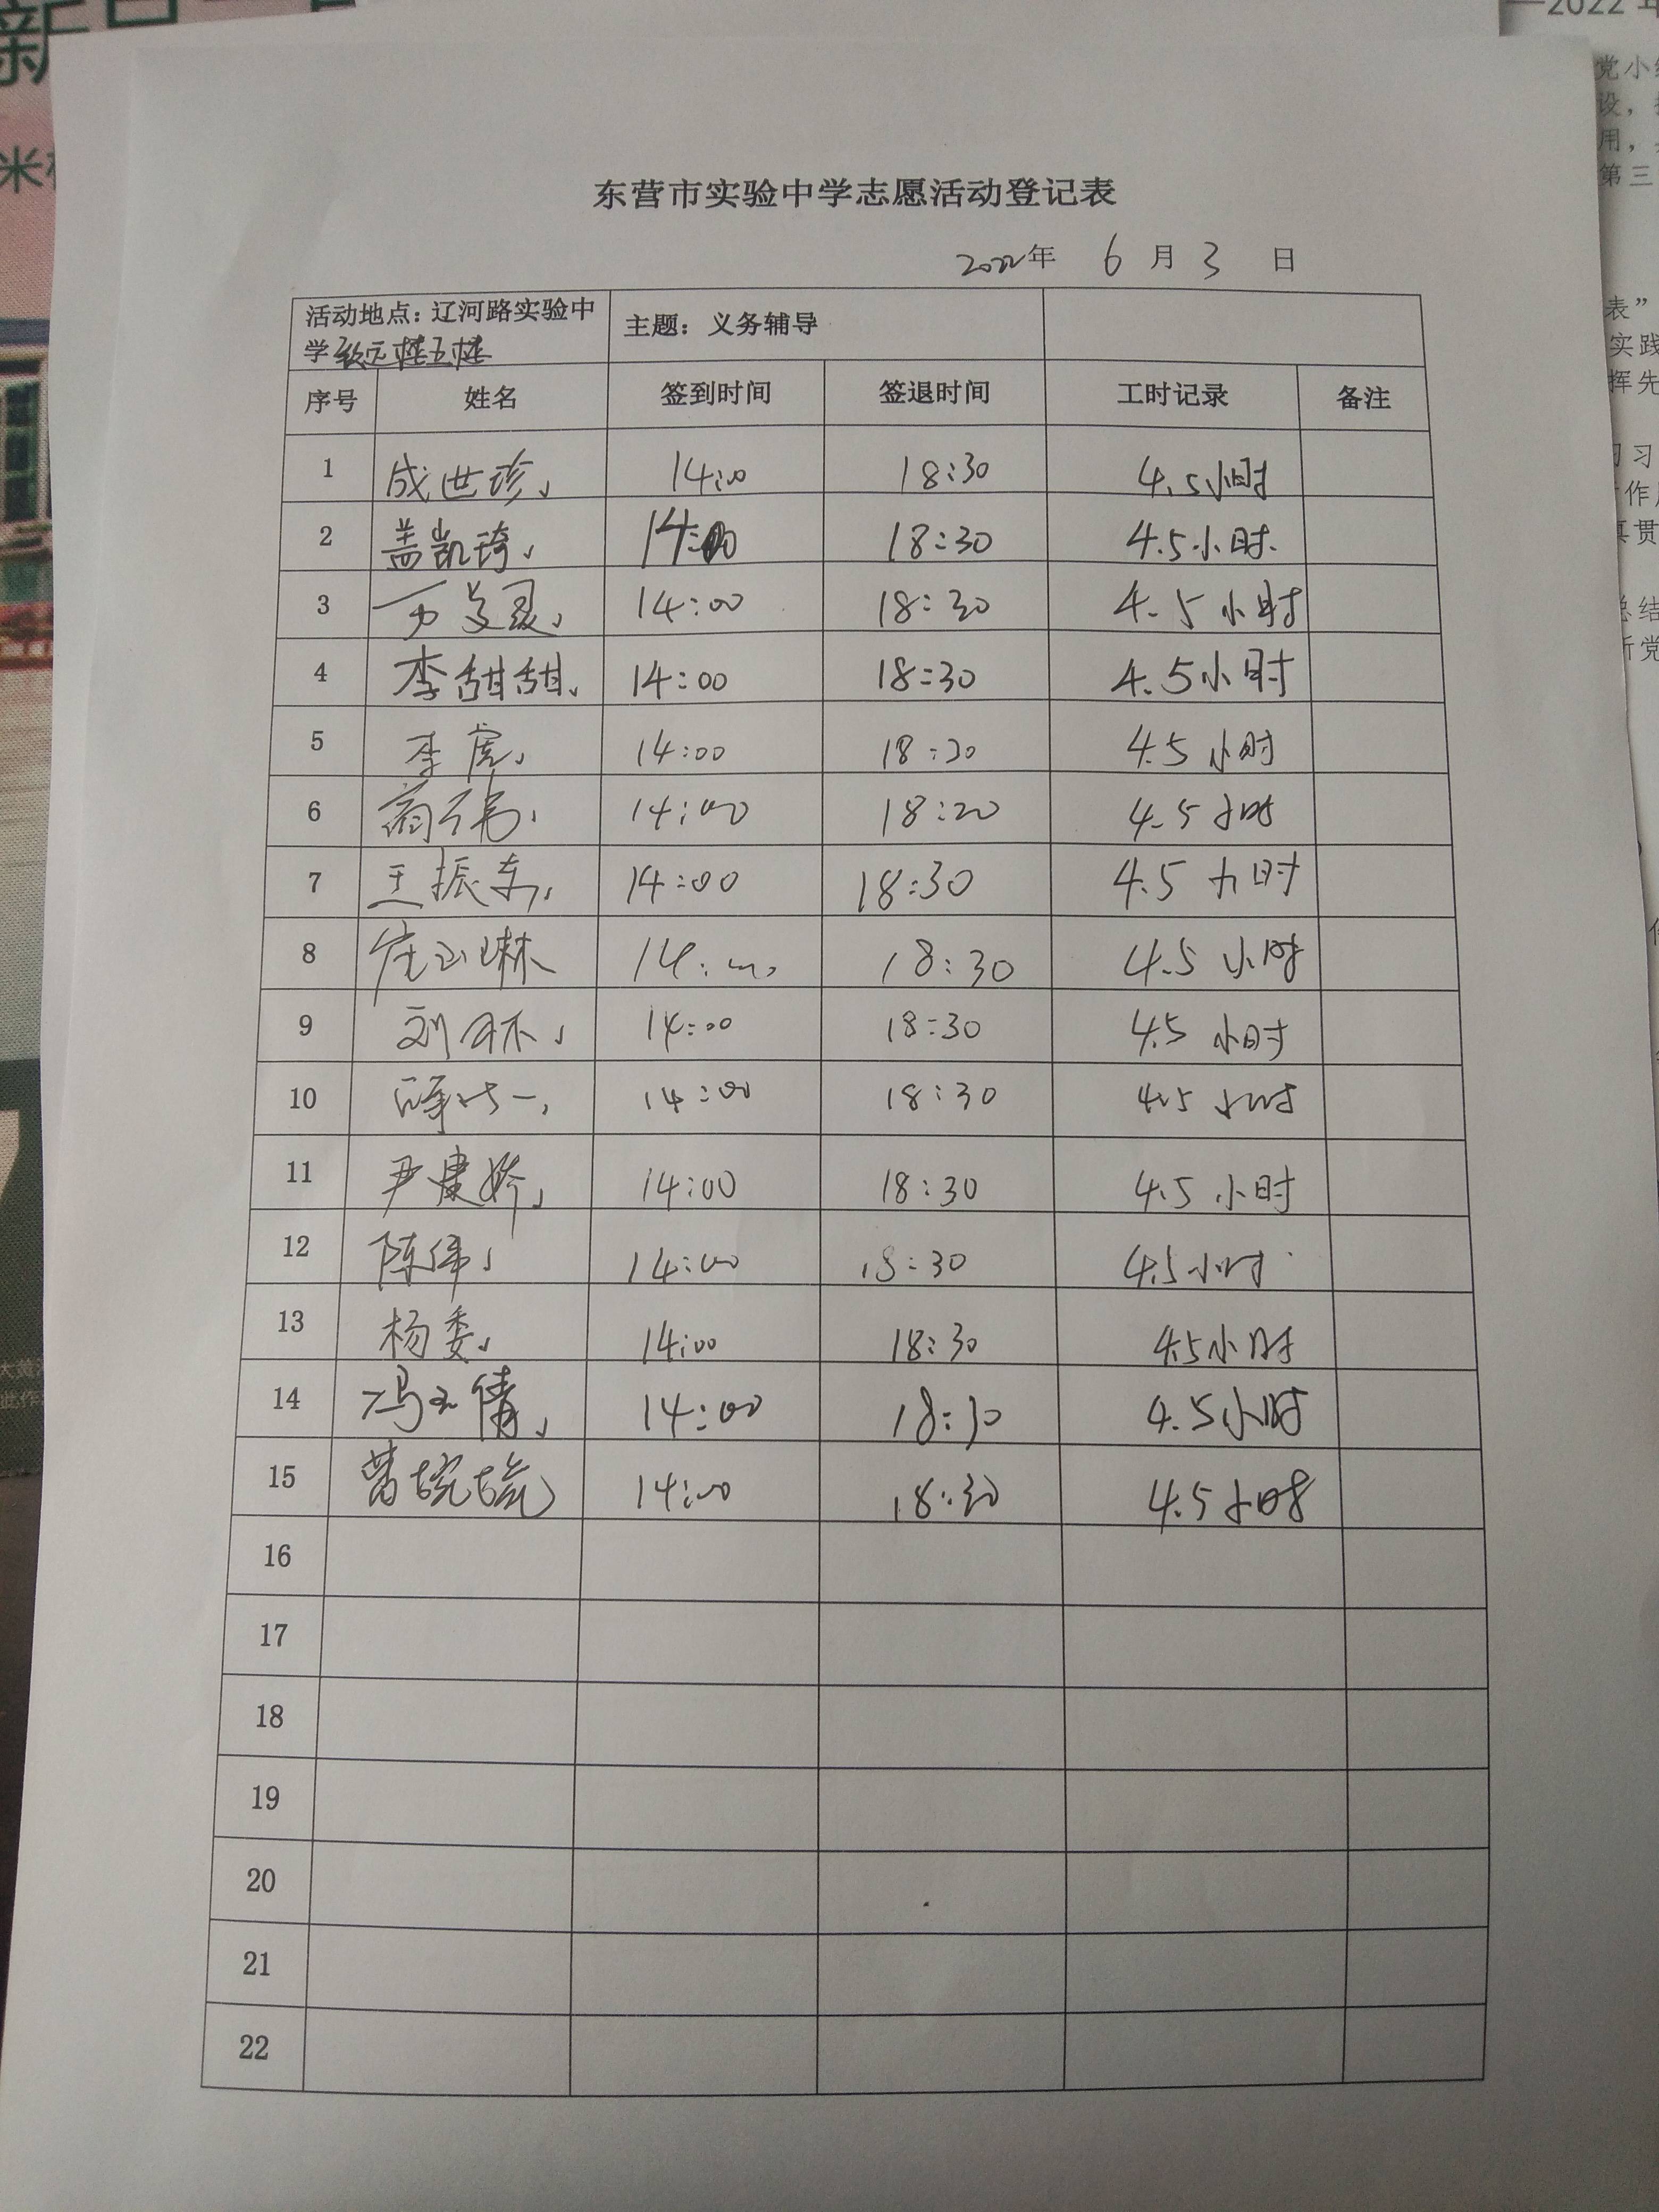 东营市实验中学志愿活动登记表
2022年 6 月 3 日
活动地点：辽河路实验中 主题：义务辅导
学
序号 姓名 签到时间 签退时间 工时记录 备注
1 成世珍 14:00 18:30 4.5小时
2 盖凯琦 14:00 18:30 4.5小时
3 14:00 18:30 4.5小时
4 李甜甜 14:00 18:30 4.5小时
5 李虎 14:00 18:30 4.5小时
6 14:00 18:30 4.5小时
7 王振东 14:00 18:30 4.5小时
8 14:00 18:30 4.5小时
9 14:00 18:30 4.5小时
10 14:00 18:30 4.5小时
11 尹康娇 14:00 18:30 4.5小时
12 陈伟 14:00 18:30 4.5小时
13 杨委 14:00 18:30 4.5小时
14 冯玉倩 14:00 18:30 4.5小时
15 14:00 18:30 4.5小时
16
17
18
19
20
21
22
2022年
党小
设，
用，
第三
表”
实践
挥先
习
作
贯
总结
党
米